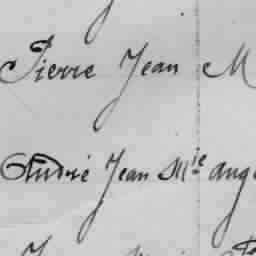 Pierre Jean M
André Jean Mie ang